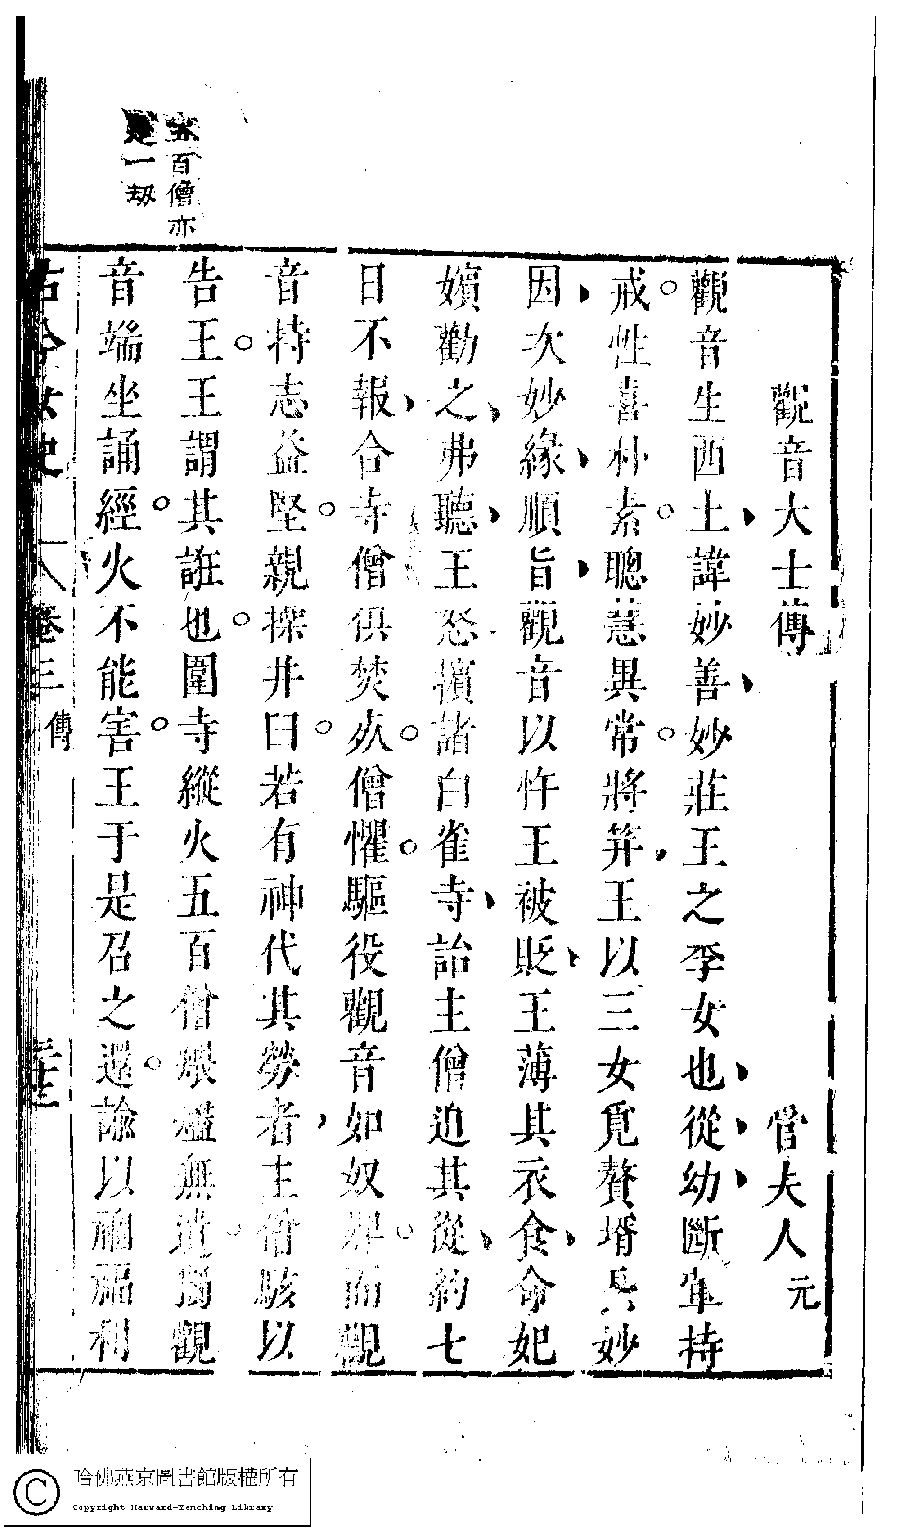 觀音大士傳　管夫人 元
觀音生西土諱妙善妙莊王之季女也從幼斷軍持
戒性喜朴素聰慧異常將笄王以三女覓贅壻長妙
因次妙緣順旨觀音以忤王被貶王薄其衣食命妃
嬪勸之弗聽王怒擯諸白雀寺詒主僧迫其從約七
日不報合寺僧俱焚死僧懼驅役觀音如奴婢而觀
音持志益堅親操井臼若有神代其勞者主僧駭以
告王王謂其誑也圍寺縱火五百僧煨燼無遺獨觀
音端坐誦經火不能害王于是召之還諭以禍福利
五百僧亦
是一劫
古今女史 卷三 傳
哈佛燕京圖書館版權所有
Copyright Harvard-Yenching Library